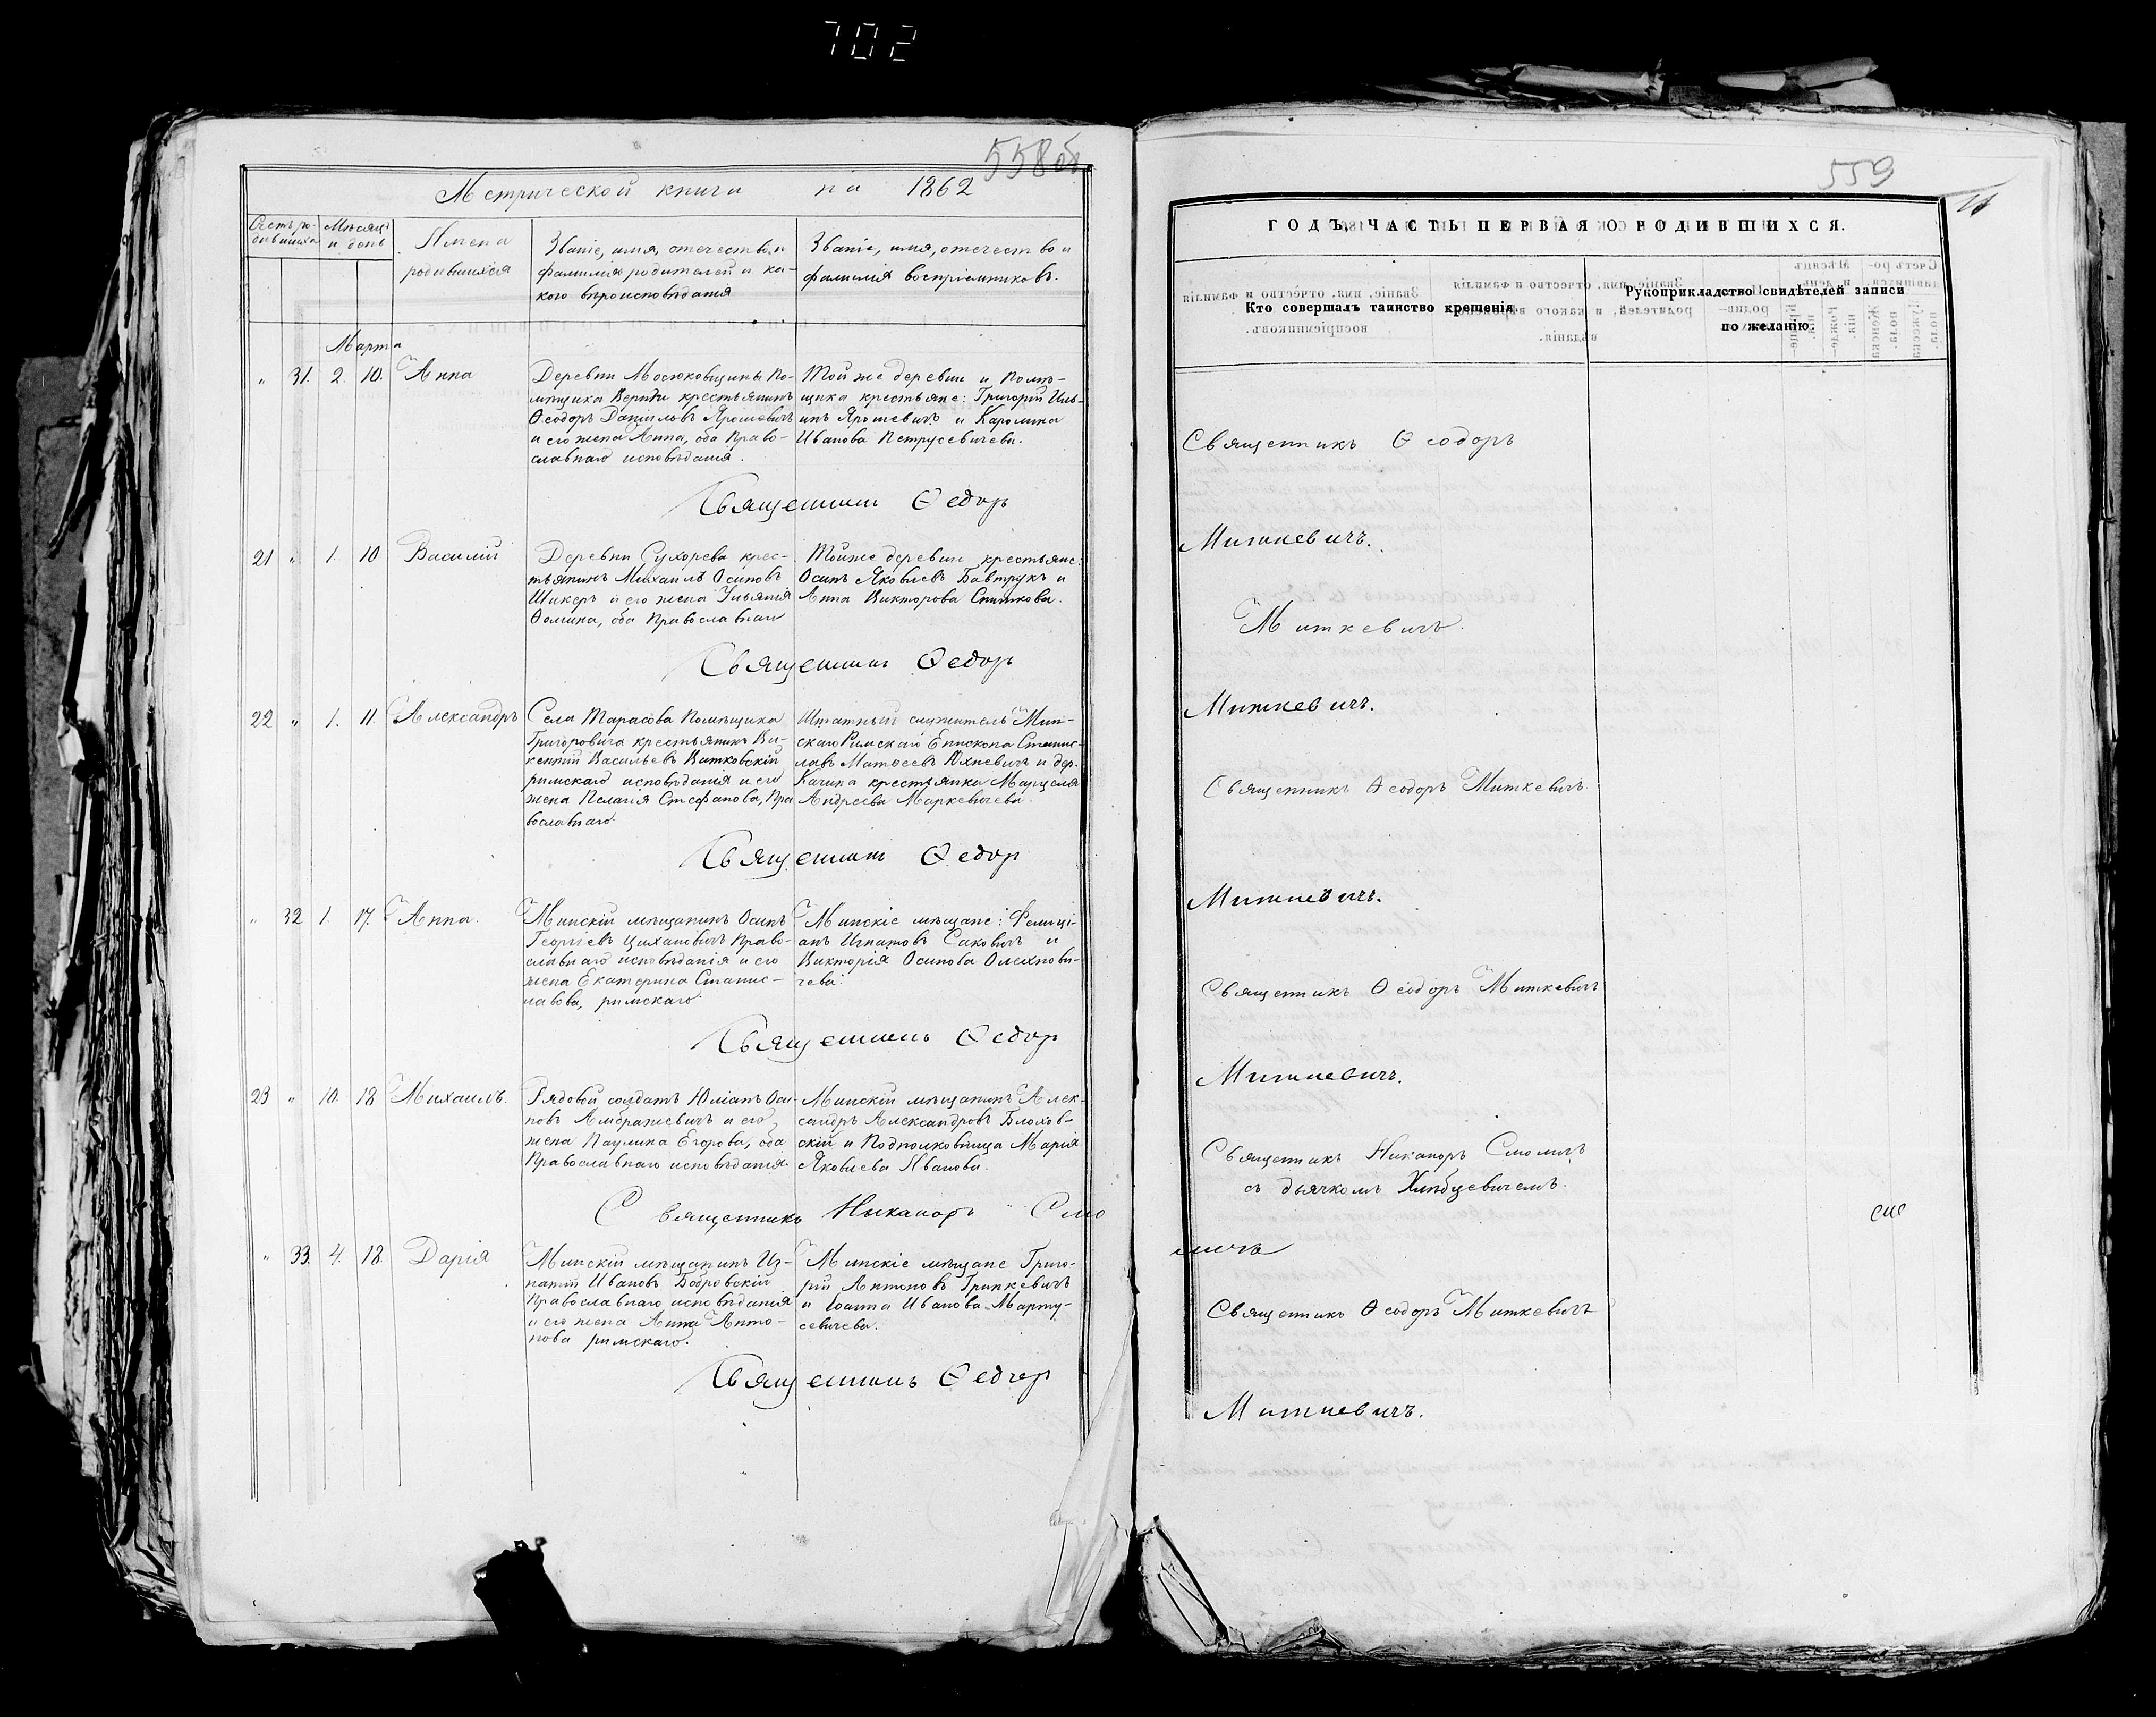 702
558об
Метрической книги на 1862
Счетъ ро-
дившихся
Мѣсяцъ
и день
Имена
родившихся
Званіе, имя, отечество, и
фамилія родителей и ка-
кого вѣроисповѣданія
Званіе, имя, отечество и
фамилія воспріемниковъ.
Марта
" 31. 2. 10. Анна
Деревни Мосюковщины По-
мѣщика крестьянинъ
Ѳеодоръ Даніиловъ Ярошевичъ
и его жена Анна, оба Право-
славнаго исповѣданія.
Той же деревни и Помѣ-
щика крестьяне: Григорій Иль-
инъ Ярошевичъ и Каролина
Иванова Петрусевичева.
Священникъ Ѳедоръ
21 " 1. 10 Василій
Деревни Сухорева крес-
тьянинъ Михаилъ Осиповъ
Шикеръ и его жена Ульянія
Ѳомина, оба Православнаго
Тойже деревни крестьяне:
Осипъ Яковлевъ Бавтрукъ и
Анна Викторова Спиткова.
Священникъ Ѳедоръ
22 " 1. 11. Александръ
Села Тарасова Помѣщика
Григоровича крестьянинъ Ви-
кентій Васильевъ Витковскій
римскаго исповѣданія и его
жена Пелагія Стефанова, Пра
вославнаго.
Штатный служитель Мин-
скаго Римскаго Епископа Станис-
лавъ Матѳеевъ Юхневичъ и дер.
Качина крестьянка Марцеля
Андреева Маркевичева.
Священникъ Ѳедор
" 32 1. 17. Анна.
Минскій мѣщанинъ Осипъ
Георгіевъ Цихановичъ Право-
славнаго исповѣданія и его
жена Екатерина Станис-
лавова, римскаго.
Минскіе мѣщане: Фелиці-
анъ Игнатовъ Саковичъ и
Викторія Осипова Олехнови-
чева.
Священникъ Ѳедор
23 " 10. 18 Михаилъ.
Рядовой солдатъ Юліанъ Оси-
повъ Амбражевичъ и его
жена Паулина Егорова, оба
Православнаго исповѣданія.
Минскій мѣщанинъ Алек-
сандръ Александровъ
скій и Подполковница Марія
Яковлева Иванова.
Священникъ Никаноръ Смо
" 33. 4. 18. Дарія
Минскій мѣщанинъ Иг-
натій Ивановъ Бобровскій
Православнаго исповѣданія
и его жена Анна Анто-
нова римскаго.
Минскіе мѣщане Григо-
рій Антоновъ Гринкевичъ
и Іоанна Иванова Марту-
севичева.
Священникъ Ѳедор
559
ГОДЪ, ЧАСТЬ ПЕРВАЯ О РОДИВШИХСЯ.
Кто совершалъ таинство крещенія.
Рукоприкладство свидѣтелей записи
по желанію.
Священникъ Ѳеодоръ
Миткевичъ.
Миткевичъ.
Миткевичъ.
Священникъ Ѳеодоръ Миткевичъ.
Миткевичъ.
Священникъ Ѳеодоръ Миткевичъ
Миткевичъ.
Священникъ Никаноръ Смоличъ
съ дьячкомъ Хлѣбцевичемъ.
личъ
Священникъ Ѳеодоръ Миткевичъ
Миткевичъ.